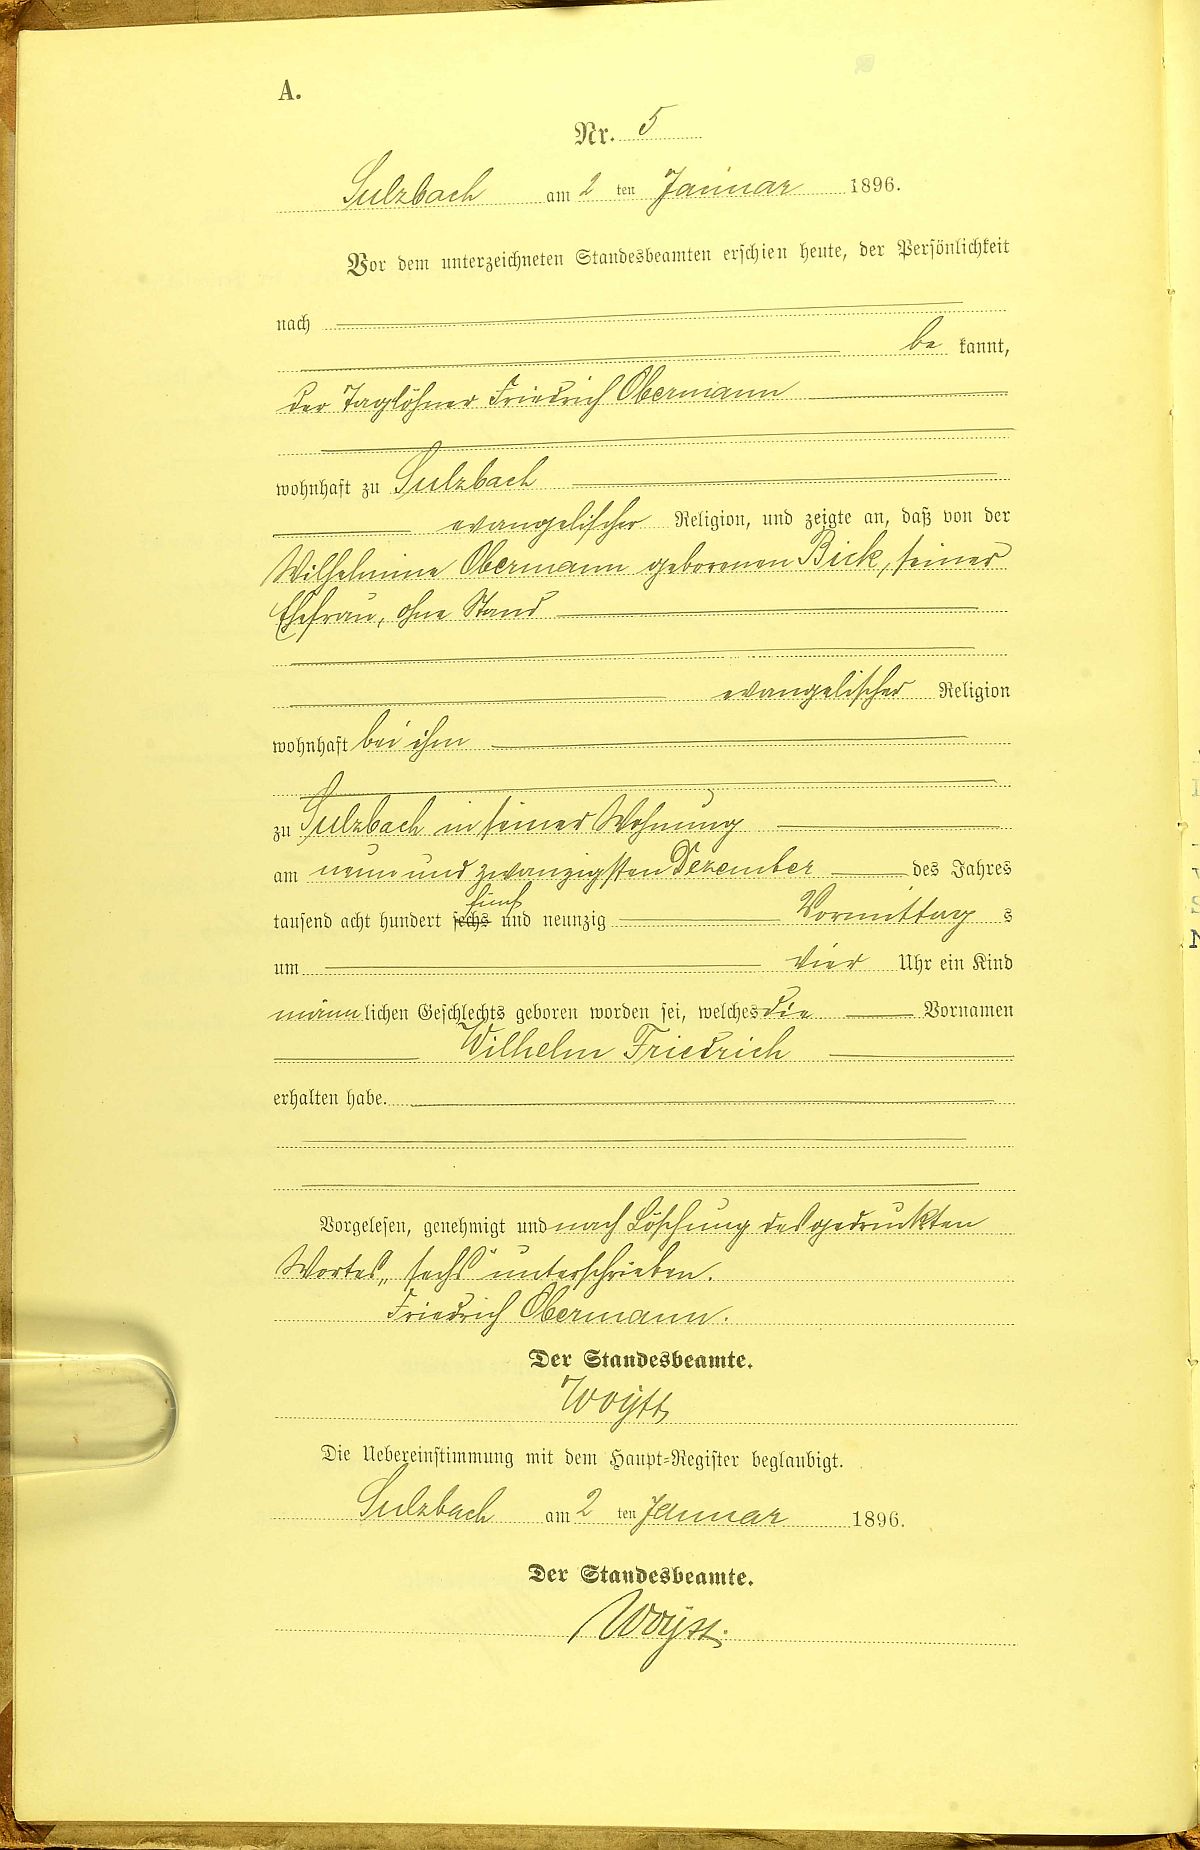 A.
Nr. 5
Sulzbach am 2 ten Januar 1896.
Vor dem unterzeichneten Standesbeamten erschien heute, der Persönlichkeit
nach
be kannt,
der Taglöhner Friedrich Obermann
wohnhaft zu Sulzbach
evangelischer Religion, und zeigte an, daß von der
Wilhelmine Obermann geborenen Bick, seiner
Ehefrau, ohne Stand
evangelischer Religion
wohnhaft bei ihm
zu Sulzbach in seiner Wohnung
am neun und zwanzigsten Dezember des Jahres
fünf
tausend acht hundert sechs und neunzig Vormittag s
um vier Uhr ein Kind
männlichen Geschlechts geboren worden sei, welches die Vornamen
Wilhelm Friedrich
erhalten habe.
Vorgelesen, genehmigt und nach Löschung des gedruckten
Wortes „sechs" unterschrieben.
Friedrich Obermann.
Der Standesbeamte.
Woytt
Die Uebereinstimmung mit dem Haupt-Register beglaubigt.
Sulzbach am 2 ten Januar 1896.
Der Standesbeamte.
Woytt.